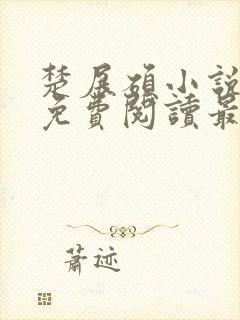 楚展碩小說
免費閱讀最
蕭迹